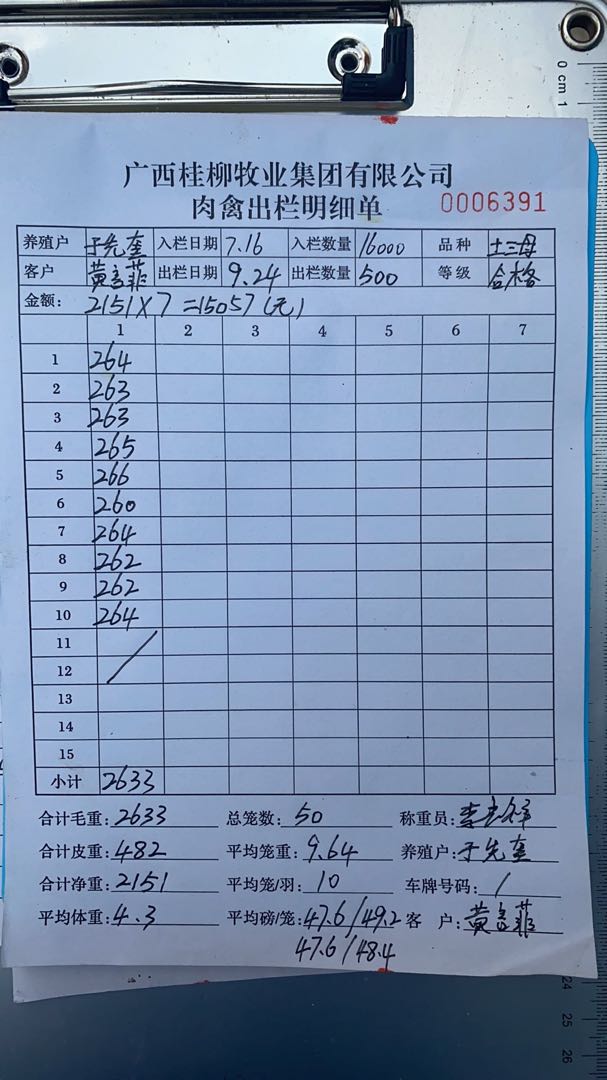 广西桂柳牧业集团有限公司
肉禽出栏明细单 0006391
养殖户 于先奎 入栏日期 7.16 入栏数量 16000 品种 土三母
客户 黄言菲 出栏日期 9.24 出栏数量 500 等级 合格
金额: 2151×7=15057(元)
1 2 3 4 5 6 7
1 264
2 263
3 263
4 265
5 266
6 260
7 264
8 262
9 262
10 264
11
12
13
14
15
小计 2633
合计毛重: 2633 总笼数: 50 称重员:
合计皮重: 482 平均笼重: 9.64 养殖户: 于先奎
合计净重: 2151 平均笼/羽: 10 车牌号码: /
平均体重: 4.3 平均磅/笼: 47.6/49.2 客户: 黄言菲
47.6/48.4
0 cm 1
24
25
26